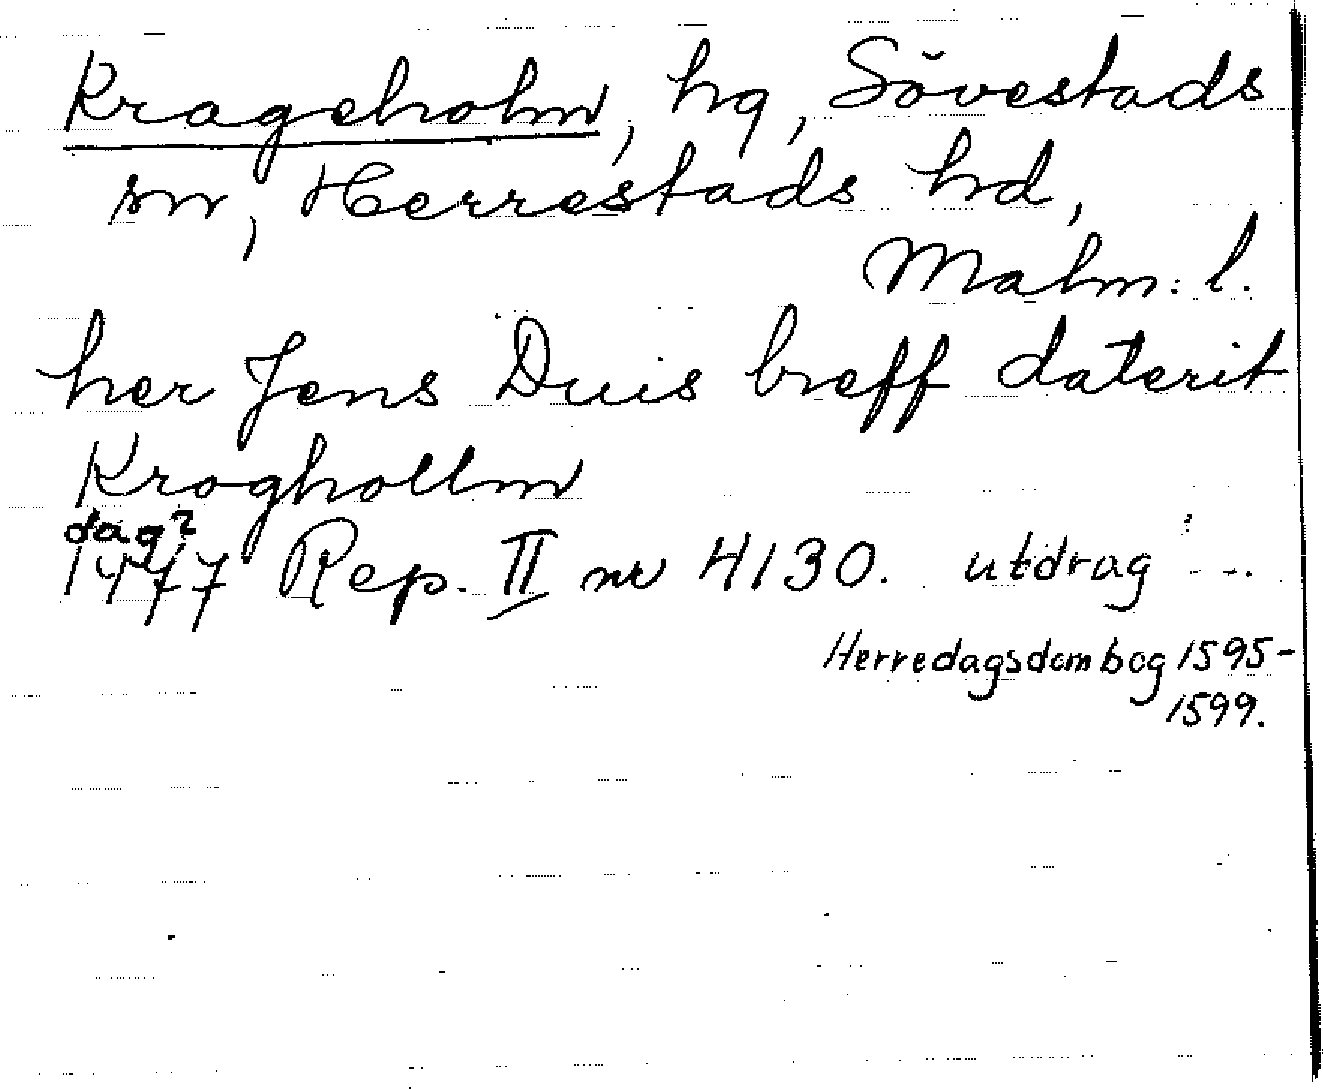 Krageholm, hg, Sövestads
sn, Herrestads hd,
Malm. l.
her Jens Duis breff daterit
Kroghollm
dag?
1477 Rep. II nr 4130. utdrag
Herredagsdombog 1595-
1599.